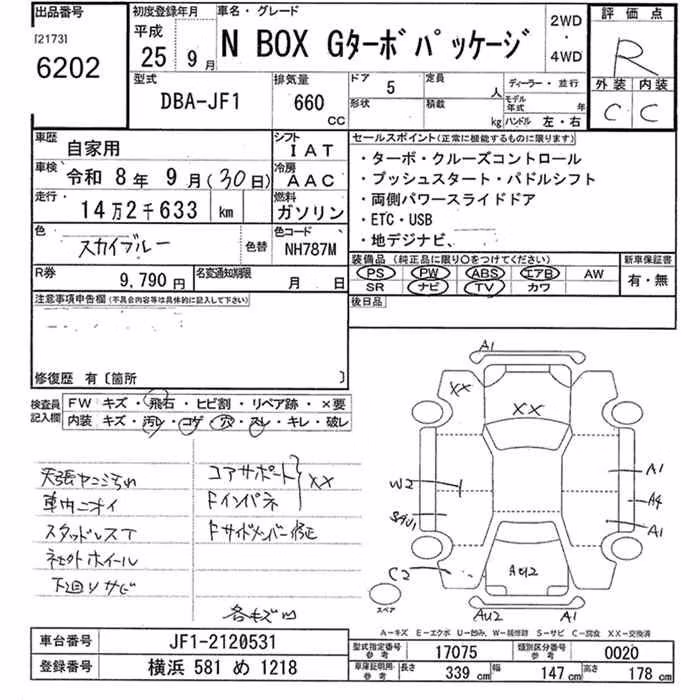 出品番号
[2173]
6202
初度登録年月
平成
25 年 9 月
車名・グレード
N BOX Gターボパッケージ
2WD
・
4WD
評価点
R
外装 内装
C C
型式
DBA-JF1
排気量
660 CC
ドア 5
形状
定員 人
積載 kg
ディーラー・並行
モデル年式 年
ハンドル 左・右
車歴 自家用
シフト IAT
車検 令和 8年 9月(30日)
冷房 AAC
走行 14万2千633 km
燃料 ガソリン
色 スカイブルー
色替
色コード NH787M
R券 9,790 円
名変通知期限 月 日
セールスポイント(正常に機能するものに限ります)
・ターボ・クルーズコントロール
・プッシュスタート・パドルシフト
・両側パワースライドドア
・ETC・USB
・地デジナビ、
装備品 (純正品に限り○をつけてください)
PS PW ABS エアB AW
SR ナビ TV カワ
新車保証書
有・無
後日品
注意事項申告欄(不具合内容等は具体的に記入して下さい)
修復歴 有〔箇所 〕
検査員記入欄
FW キズ・飛石・ヒビ割・リペア跡・×要
内装 キズ・汚レ・コゲ・穴・スレ・キレ・破レ
天張ヤニ汚れ
車内ニオイ
スタッドレスT
社外ホイール
下廻りサビ
コアサポート
Fインパネ
XX
Fサイドメンバー修正
各キズ凹
A1
XX
XX
W2
SAU1
C2
A1
A4
A1
AU2
AU2
A1
スペア
A-キズ E-エクボ U-凹み、W-補修跡 S-サビ C-腐食 XX-交換済
車台番号 JF1-2120531
登録番号 横浜 581 め 1218
型式指定番号 参考 17075
類別区分番号 参考 0020
車庫証明用・参考 長さ 339 cm 幅 147 cm 高さ 178 cm